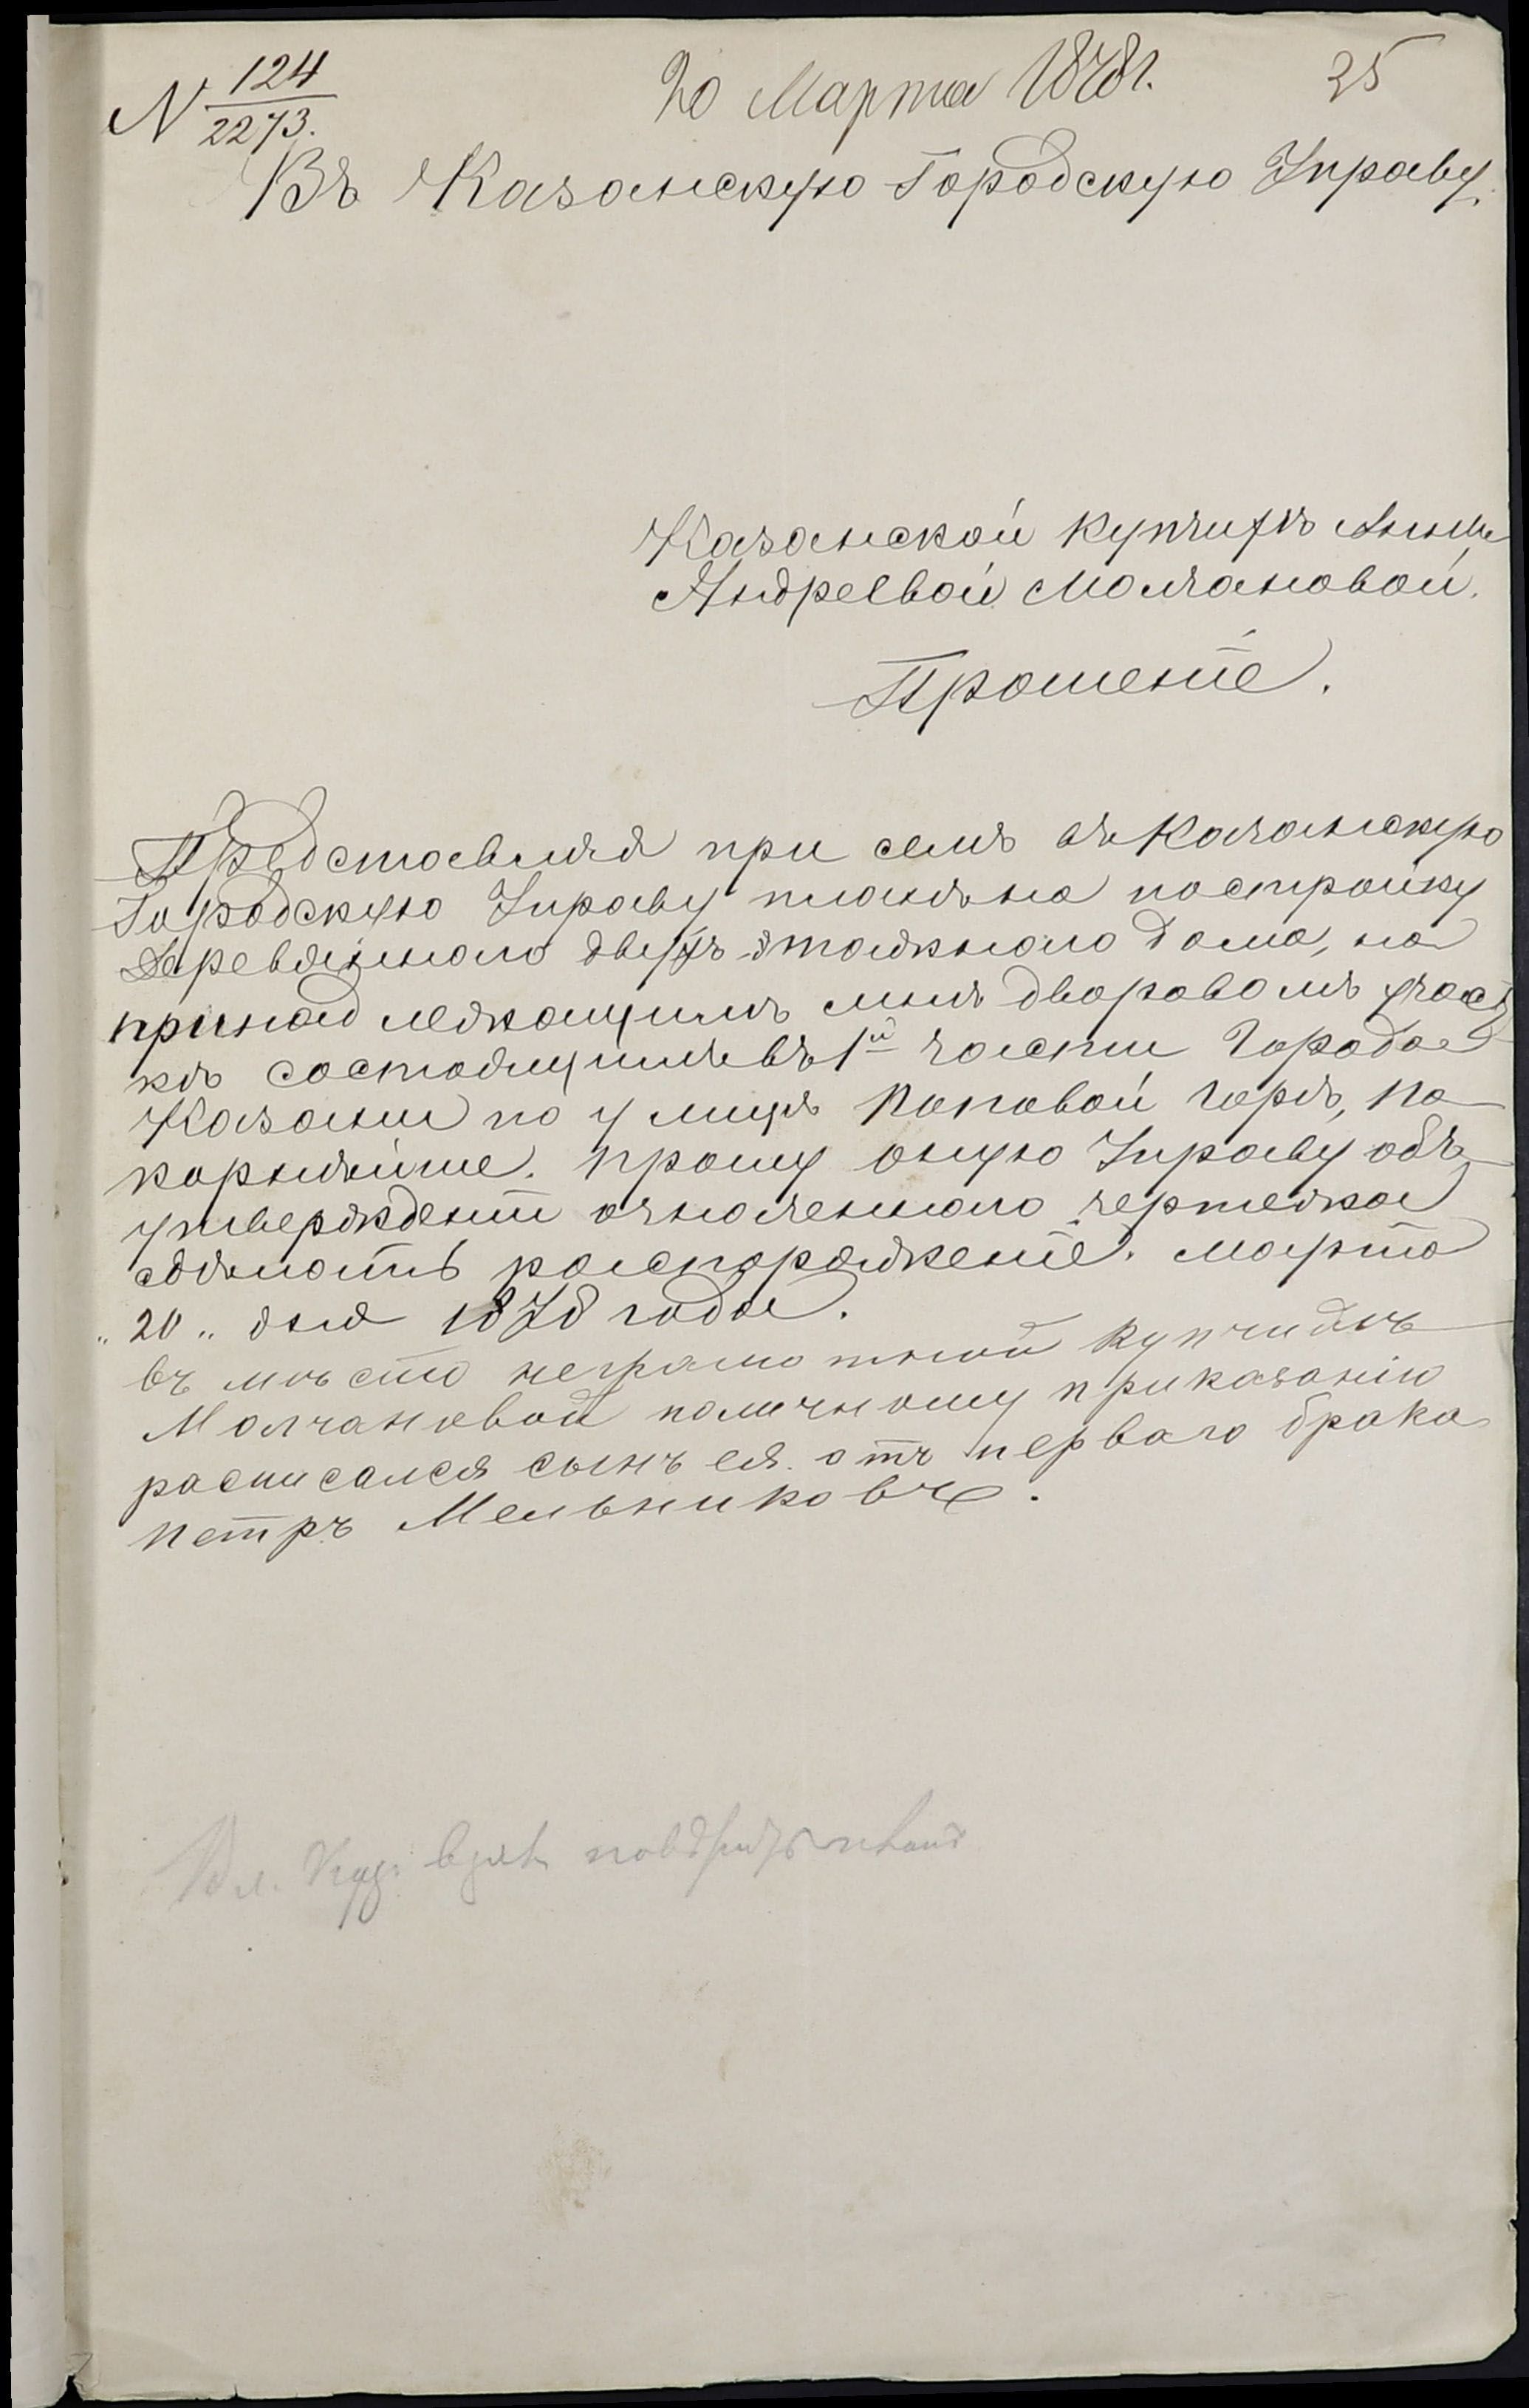 N 124/2273.
20 Марта 1878 г.
25
Въ Казанскую Городскую Управу.
Казанской купчихѣ Анны
Андреевой Молчановой.
Прошеніе.
Представляя при семъ въ Казанскую
Городскую Управу планъ на постройку
деревяннаго двухъ-этажнаго дома, на
принадлежащимъ мнѣ дворовомъ участ
кѣ состоящимъ въ 1й части Города
Казани по улицѣ Поповой горѣ, по
корнѣйше. прошу оную Управу объ
утвержденіи означеннаго чертежа
сдѣлать распоряженіе. Марта
„20„ дня 1878 года.
въ мѣсто неграмотной купчихѣ
Молчановой поличному приказанію
росписался сынъ ея. отъ перваго брака
петръ Мельниковъ.